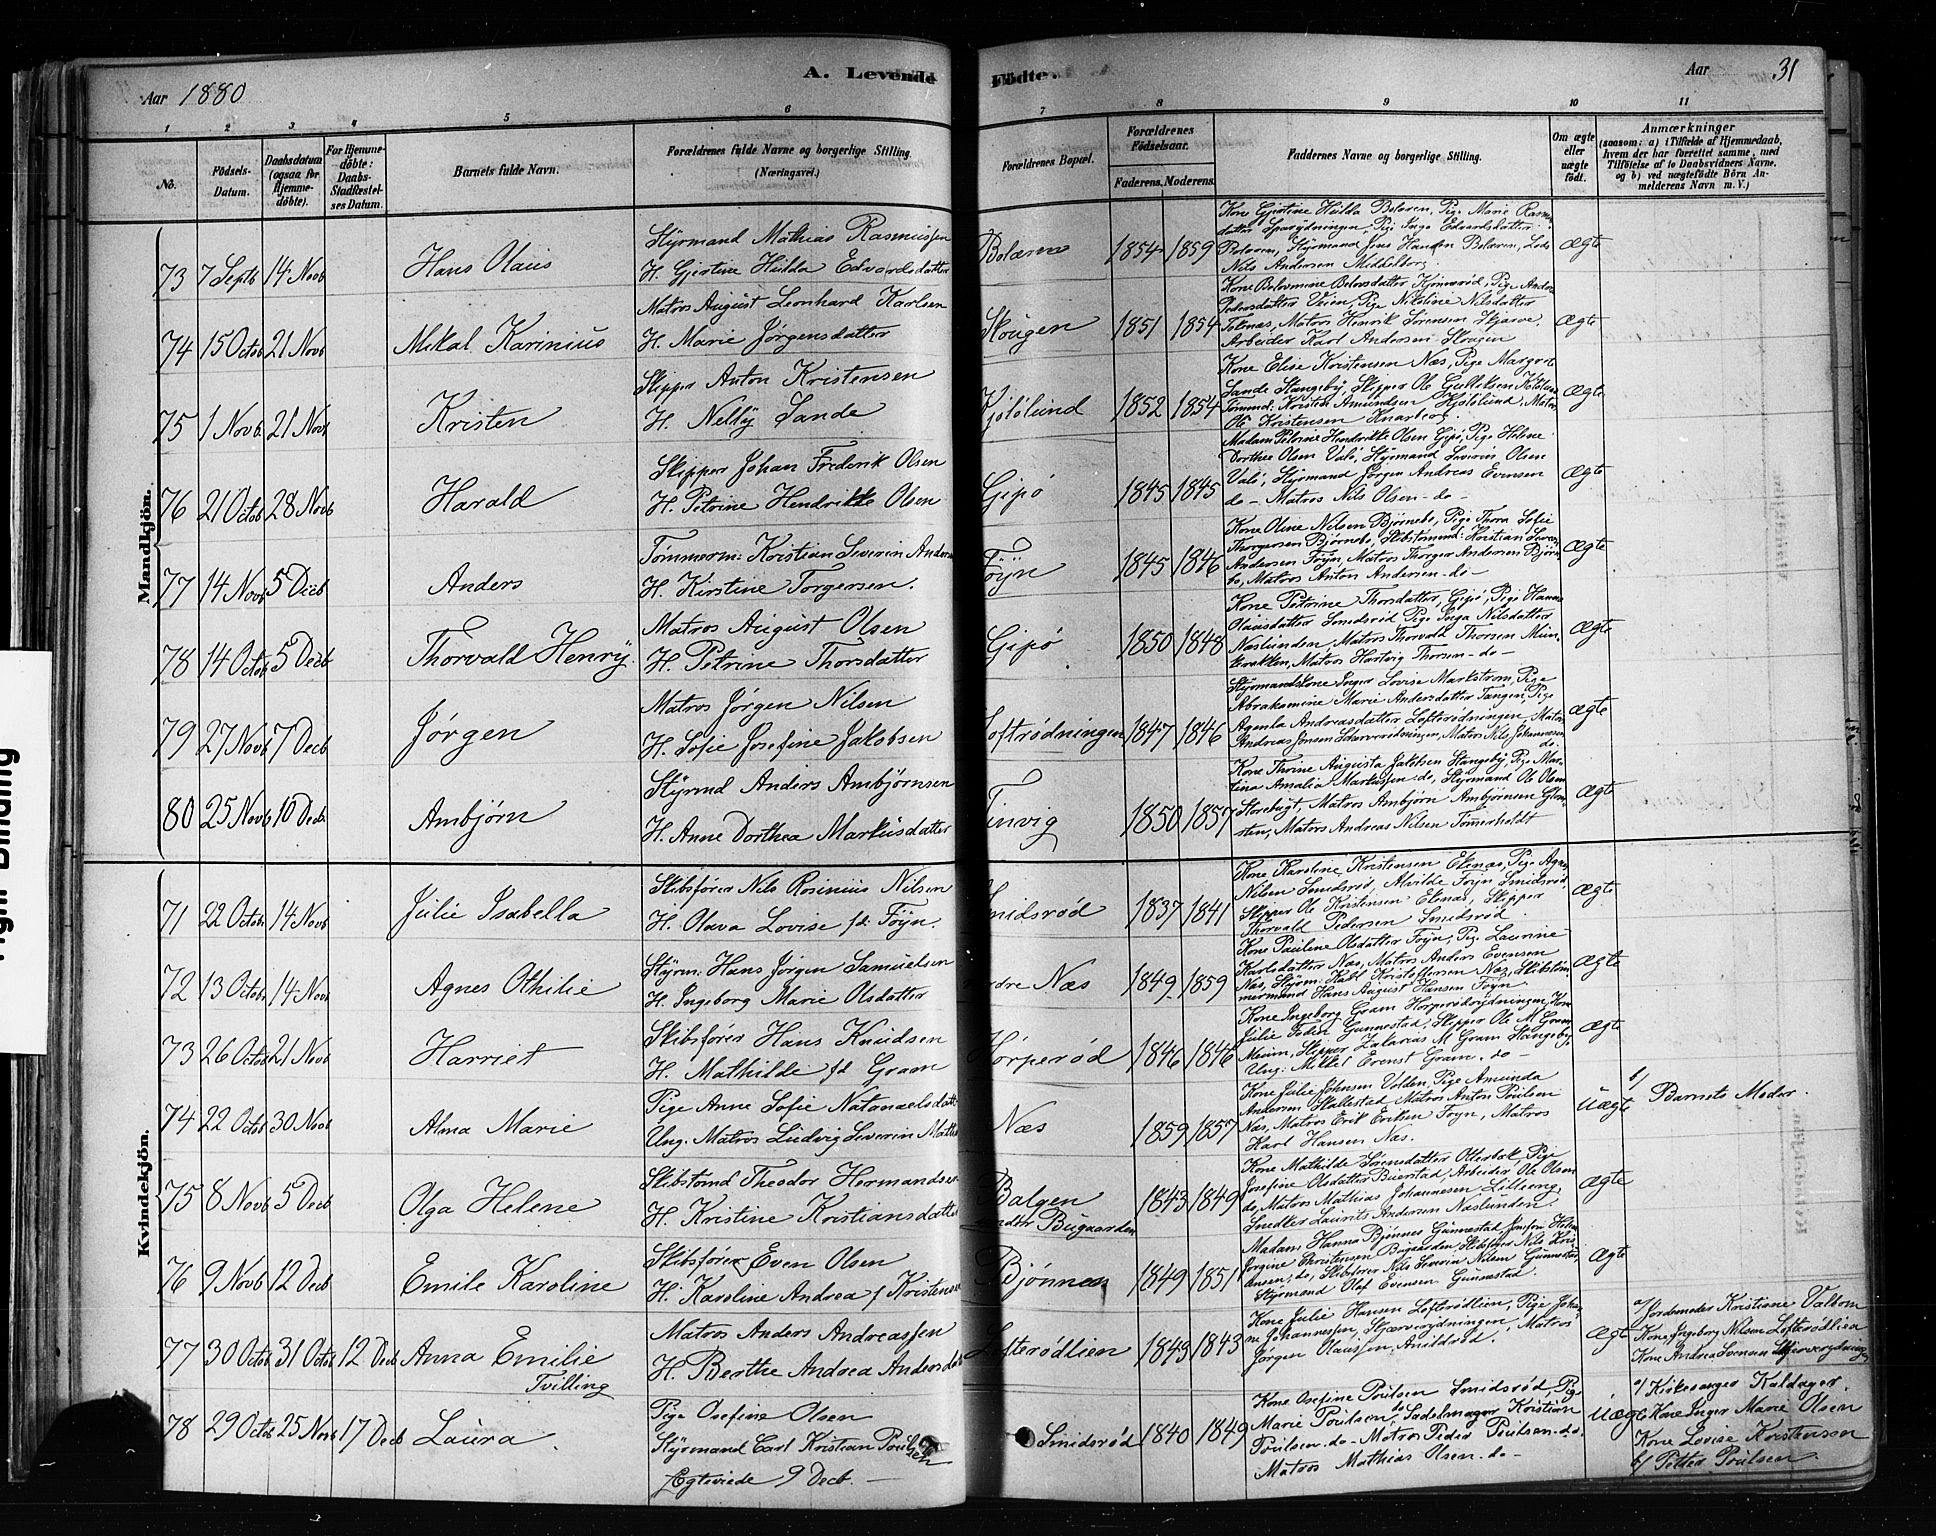 Aar 1880
A. Levende
Fødte.
Aar
31
1 2 3 4 5 6 7 8 9 10 11
No.
Födsels-
Datum.
Daabsdatum
(ogsaa for
Hjemme-
döbte).
For Hjemme-
döbte:
Daabs-
Stadfæstel-
ses Datum.
Barnets fulde Navn.
Forældrenes fulde Navne og borgerlige Stilling.
(Næringsvei.)
Forældrenes Bopæl.
Forældrenes
Födselsaar.
Faderens. Moderens.
Faddernes Navne og borgerlige Stilling.
Om ægte
eller
uægte
födt.
Anmærkninger
(saasom: a) i Tilfælde af Hjemmedaab,
hvem der har forrettet samme, med
Tilföielse af to Daabsvidners Navne,
og b) ved uægtefödte Börn An-
melderens Navn m. V.)
Mandkjön.
73 7 Septb 14 Novb Hans Olaus
Styrmand Mathias Rasmussen
H. Gjertine Hulda Edvardsdatter
Bolærne 1854 1859
Kone Gjertine Hulda Bolæren, Pige Marie Rasmus
Bolæren, Styrmand Jens Hansen Bolæren, Lods
Nils Andersen Middelborg.
Ægte
74 15 Octob 21 Novb Mikal Karinius
Matros August Leonhard Karlsen
H. Marie Jørgensdatter
Skougen 1851 1854
Pedersdatter Veien, Pige Nilsine Nilsdatter
Matros Henrik Sørensen Skjærve,
Arbeider Karl Andersen Skougen
Ægte
75 1 Novb 21 Novb Kristen
Skipper Anton Kristensen
H. Nelly Sande
Kjølølund 1852 1854
Kone Elise Kristensen Næs, Pige Margret
Sande Stangeby, Skipper Ole Gulliksen
Tømmd: Kristen Amundsen Kjølølund, Matros
Ole Kristensen Knarberg.
Ægte
76 21 Octob 28 Novb Harald
Skipper Johan Frederik Olsen
H. Petrine Hendrikke Olsen
Gipø 1845 1845
Madam Petrine Hendrikke Olsen Gipø, Pige Helene
Dorthea Olsen Valø, Styrmand Severin Olsen
Valø, Styrmand Jørgen Andreas Evensen
do - Matros Nils Olsen - do -
Ægte
77 14 Novb 5 Decb Anders
Tømmerm: Kristian Severin Anders
H. Kirstine Torgersen.
Føyn 1845 1846
Kone Oline Nilsen Bjørnebo, Pige Thora Sofie
Thorgersen Bjørnebo, Skibstømmd: Kristian Severin
Andersen Føyn, Matros Thorger Andersen Bjørne-
bo, Matros Anton Andersen - do -
Ægte
78 14 Octob 5 Decb Thorvald Henry.
Matros August Olsen
H. Petrine Thorsdatter
Gipø 1850 1848
Kone Petrine Thorsdatter, Gipø, Pige Hanna
Olausdatter Smidsrød Pige Inga Nilsdatter
Naslunden, Matros Thorvald Thorsen Mun-
kerekken, Matros Hartvig Thorsen - do -
Ægte
79 27 Novb 7 Decb Jørgen
Matros Jørgen Nilsen
H. Sofie Josefine Jakobsen
Loftrødningen 1847 1846
Styrmandskone Inger Lovise Markstrøm, Pige
Abrahamine Marie Andersdatter Tangen, Pige
Agenla Andreasdatter Lofterødningen, Matros
Andreas Jonsen Skjærverødningen, Matros Nils Johannesen
do.
Ægte
80 25 Novb 10 Decb. Ambjørn
Styrmd Anders Ambjørnsen
H. Anne Dorthea Markusdatter
Tinvig 1850 1857
Kone Thrine Augusta Jakobsen Stangeby, Pige Mar-
tina Amalia Markussen do, Styrmand Ole Olsen
Storebugt, Matros Ambjørn Ambjørnsen Glom-
sten, Matros Andreas Nilsen Tømmerholdt
Ægte
Kvindekjön.
71 22 Octob. 14 Novb Julie Isabella
Skibsfører Nils Rosinius Nilsen
H. Olava Lovise fd: Føyn.
Smidsrød 1837 1841
Kone Karoline Kristensen Ekenæs, Pige Agnes
Nilsen Smidsrød, Alvilde Føyn Smidsrød,
Skipper Ole Kristensen Ekenæs, Skipper
Thorvald Pedersen Smidsrød
Ægte
72 13 Octob 14 Novb Agnes Othilie
Styrm. Hans Jørgen Samuelsen
H. Ingeborg Marie Olsdatter
Nordre Næs 1849 1859
Kone Pauline Olsdatter Føyn, Pige Laurine
Karlsdatter Næs, Matros Anders Evensen
Næs, Styrm: Karl Kristoffersen Næs, Skibstøm-
mermand Hans August Hansen Føyn
Ægte
73 26 Octob 21 Novb Harriet
Skibsfører Hans Knudsen
H. Mathilde fd Gram
Horperød 1846 1846
Kone Ingeborg Gram Horperødrydningen, Kone
Julie Foden Gunnestad, Skipper Ole M Gram
Meum, Skipper Zakarias M Gram Stangeby,
Ung: Mikkel Evenst Gram. do -
Ægte
74 22 Octob 30 Novb Alma Marie
Pige Anne Sofie Natanaelsdatt
Ung. Matros Ludvig Severin Math
Næs 1859 1857
Kone Julie Johnsen Volden, Pige Amunda
Andersen Hallestad Matros Anton Poulsen
Næs, Matros Erik Eriksen Føyn, Matros
Karl Hansen Næs.
Uægte
b/ Barnets Moder.
75 8 Novb 5 Decb Olga Helene
Skibstømd Theodor Hermandsen
H. Kristine Kristiansdatter
Balgen
Bugaarden 1843 1849
Kone Mathilde Sørensdatter Otterbæk, Pige
Josefine Olsdatter Buerstad, Arbeider Ole Olsen
do, Matros Mathias Johannesen Lilleeng,
Snedker Laurits Andersen Naslunden.
Ægte
76 9 Novb 12 Decb Emile Karoline
Skibsfører Even Olsen
H. Karoline Andrea f Kristensen
Bjønnes 1849 1851
Madam Hanna Bjønnes Gunnestad, Jomfru Helene
Jørgine Christensen Bugaarden, Skibsfører Nils Kris-
tensen, do, Skibsfører Nils Severin Nilsen Gunnestad,
Styrmand Olof Evensen Gunnestad.
Ægte
77 30 Octob 31 Octob 12 Decb Anna Emilie
Tvilling
Matros Anders Andreassen
H. Berthe Andrea Andersdatt
Lofterødlien 1843 1843
Kone Julie Hansen Lofterødlien, Pige Johan-
ne Johannessen, Skjærverydningen, Matros
Jørgen Olaussen Arildsrød.
Ægte
a/ Jordemoder Kristiane Valbom
Kone Ingeborg Nilsen Lofterødlien
Kone Andrea Svensen Skjærverydning
78 29 Octob 25 Novb 17 Decb Laura.
Pige Josefine Olsen
Styrmand Carl Kristian Poulsen
Ægteviede 9 Decb. -
Smidsrød 1840 1849
Kone Josefine Poulsen Smidsrød, Pige
Marie Poulsen do, Sadelmager Kristian
Poulsen. do - Matros Peder Poulsen. do,
Matros Mathias Olsen. do -
Uægte
a/ Kirkesanger Kaldager.
Kone Inger Marie Olsen
Kone Lovise Kristensen
b/ Petter Poulsen.